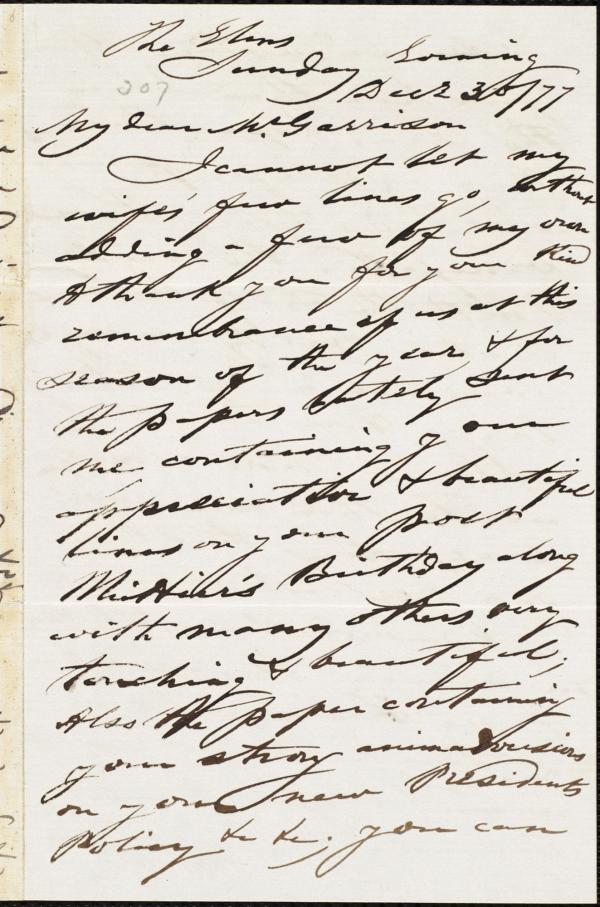 The Elms
Sunday Evening
207
Decr 30/77
My dear Mr Garrison
I cannot let my
wife's few lines go, without
adding a few of my own
to thank you for your kind
remembrance of us at this
season of the year, & for
the papers lately sent
me containing your
appreciative & beautiful
lines on your poet
Whittier's Birthday along
with many others very
touching & beautiful;
Also the paper containing
your strong animadversions
on your new Presidents
Policy &c &c; you can